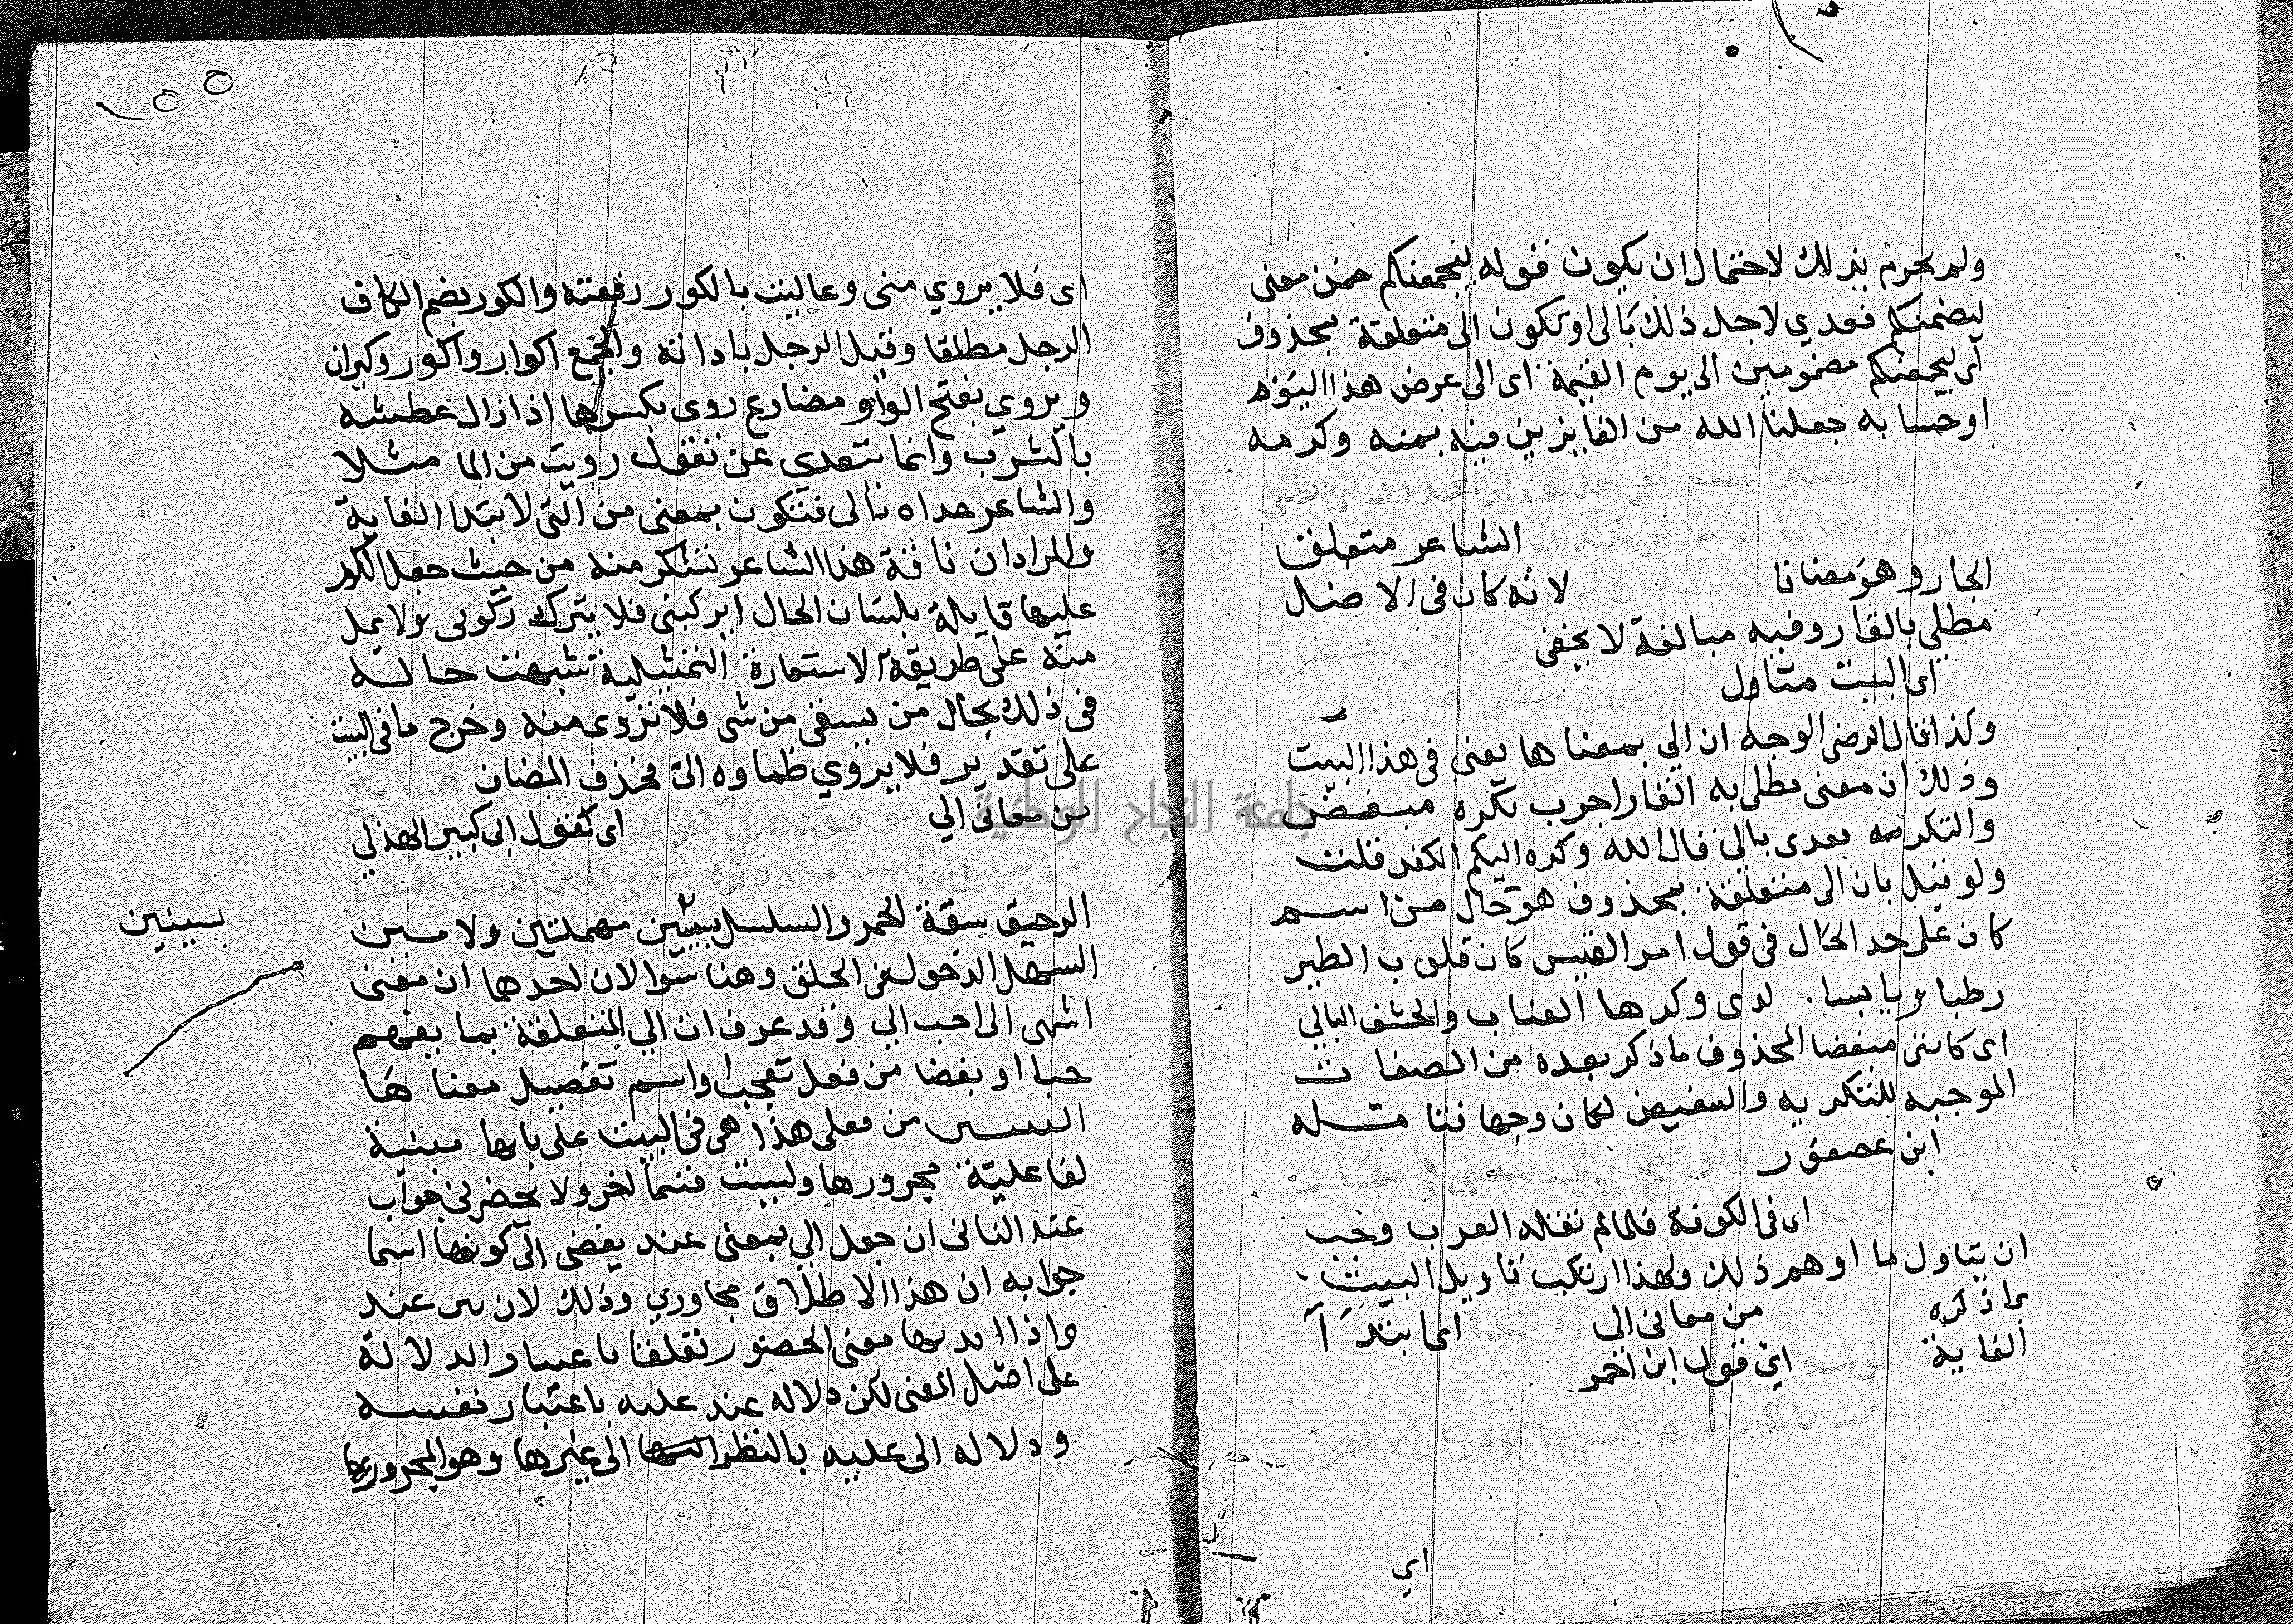 ولم يجزم بذلك لاحتمال ان يكون قوله ليجمعنكم ضمن معنى
ليضمنكم فعدي لاجل ذلك بالى او تكون الى متعلقة بمحذوف
اى ليجمعنكم مضمومين الى يوم القيمة اى الى عرض هذا اليوم
او حسابه جعلنا الله من الفايزين فيه بمنه وكرمه
الشاعر متعلق
الجار وهو مضافا لانه كان فى الاصل
مطلي بالقار وفيه مبالغة لا يخفى
اى البيت متاول
وكذا قال الرضى الوجه ان الي بمعناها يعنى فى هذا البيت
وذلك ان معنى مطلى به القار اجرب تكره مبغض
والتكريه يعدى بالى قال الله وكره اليكم الكفر قلت
ولو قيل بان الى متعلقة بمحذوف هو حال من اسم
كان على حد الحال فى قول امر القيس كان قلوب الطير
رطبا ويابسا . لدى وكرها العناب والحشف البالي
اى كاننى مبغضا المحذوف ما ذكر بعده من الصفات
الموجبه للتكريه والتبغيض لكان وجها تنا مثله
ابن عصفور
اى فى الكوفة فلما لم نقله العرب وجب
ان يتاول ما اوهم ذلك ولهذا ارتكب تاويل البيت .
بما ذكره من معانى الى اى ابتدآ
الغاية اى قول ابن احمر
اي
٥٥
اى فلا يروي منى وعاليت بالكور رفعته والكور بضم الكاف
الرحل مطلقا وقيل الرحل باداته والجمع اكوار واكور وكيران
ويروي بفتح الواو مضارع روى بكسرها اذا زال عطشه
بالشرب وانما يتعدى عن تقول رويت من الما مثلا
والشاعر عداه بالى فتكون بمعنى من التى لابتدا الغاية
والمراد ان ناقة هذا الشاعر تتشكر منه من حيث جعل الكور
عليها قايلة بلسان الحال ايركبنى فلا يترك ركوبى ولا يمل
منه على طريقة الاستعارة التمثيلية شبهت حاله
فى ذلك بحال من يسقى من شى فلا تروى منه وخرج ما فى البيت
على تقدير فلا يروي ظماوه الى فحذف المضاف
من معانى الي اى كقول ابى كبير الهذلي
الرحيق سقة الخمر والسلسل بسينين مهملتين ولامين
بسينين
السهل الدخول فى الحلق وهنا سوالان احدها ان معنى
اشهى الى احب الي وقد عرف ان الي المتعلقة بما يفهم
حبا او بغضا من فعل تعجب او اسم تفصيل معناها
التبيين من فعلى هذا هى فى البيت على بابها مبينة
لفاعلية مجرورها وليست قسما اخر ولا يحضرنى جواب
عند الثانى ان جعل الي بمعنى عند يفضى الى كونها اسما
جوابه ان هذا الاطلاق مجاوري وذلك لان عند
واذا معنى الحضور باعتبار الدلالة
على اصل المعنى لكن دلاله عند عليه باعتبار نفسه
ودلاله الى عليه بالنظر الى غيرها وهو المجرور بها